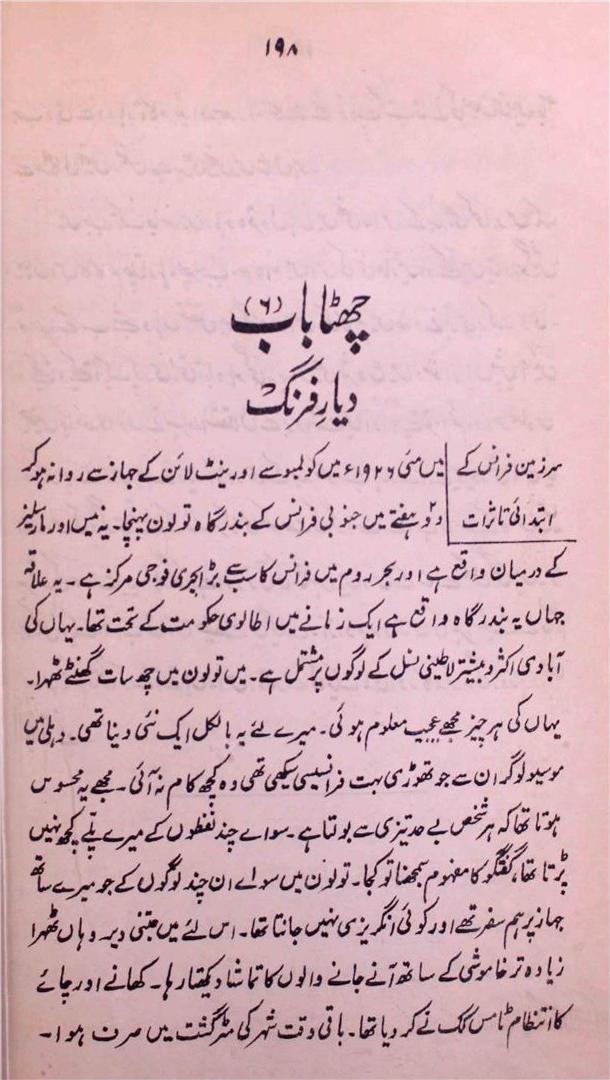 ۱۹۸
چھٹا باب (۶)
دیارِ فرنگ
سرزمین فرانس کے
ابتدائی تاثرات
میں مئی ۱۹۲۶ء میں کولمبو سے اورینٹ لائن کے جہاز سے روانہ ہو کر
دو ہفتے میں جنوبی فرانس کے بندرگاہ تولون پہنچا۔ یہ نیس اور مارسیلز
کے درمیان واقع ہے اور بحر روم میں فرانس کا سب سے بڑا بحری فوجی مرکز ہے۔ یہ علاقہ
جہاں یہ بندرگاہ واقع ہے ایک زمانے میں اطالوی حکومت کے تحت تھا۔ یہاں کی
آبادی اکثر و بیشتر لاطینی نسل کے لوگوں پر مشتمل ہے۔ میں تولون میں چھ سات گھنٹے ٹھہرا۔
یہاں کی ہر چیز مجھے عجیب معلوم ہوئی۔ میرے لئے یہ بالکل ایک نئی دنیا تھی۔ دہلی میں
موسیو لوگران سے جو تھوڑی بہت فرانسیسی سیکھی تھی وہ کچھ کام نہ آئی۔ مجھے یہ محسوس
ہوتا تھا کہ ہر شخص بے حد تیزی سے بولتا ہے۔ سوائے چند لفظوں کے میرے پلّے کچھ نہیں
پڑتا تھا، گفتگو کا مفہوم سمجھنا تو کجا۔ تولون میں سوائے ان چند لوگوں کے جو میرے ساتھ
جہاز پر ہم سفر تھے اور کوئی انگریزی نہیں جانتا تھا۔ اس لئے میں جتنی دیر وہاں ٹھہرا
زیادہ تر خاموشی کے ساتھ آنے جانے والوں کا تماشا دیکھتا رہا۔ کھانے اور چائے
کا انتظام ٹامس کک نے کر دیا تھا۔ باقی وقت شہر کی مٹرگشت میں صرف ہوا۔